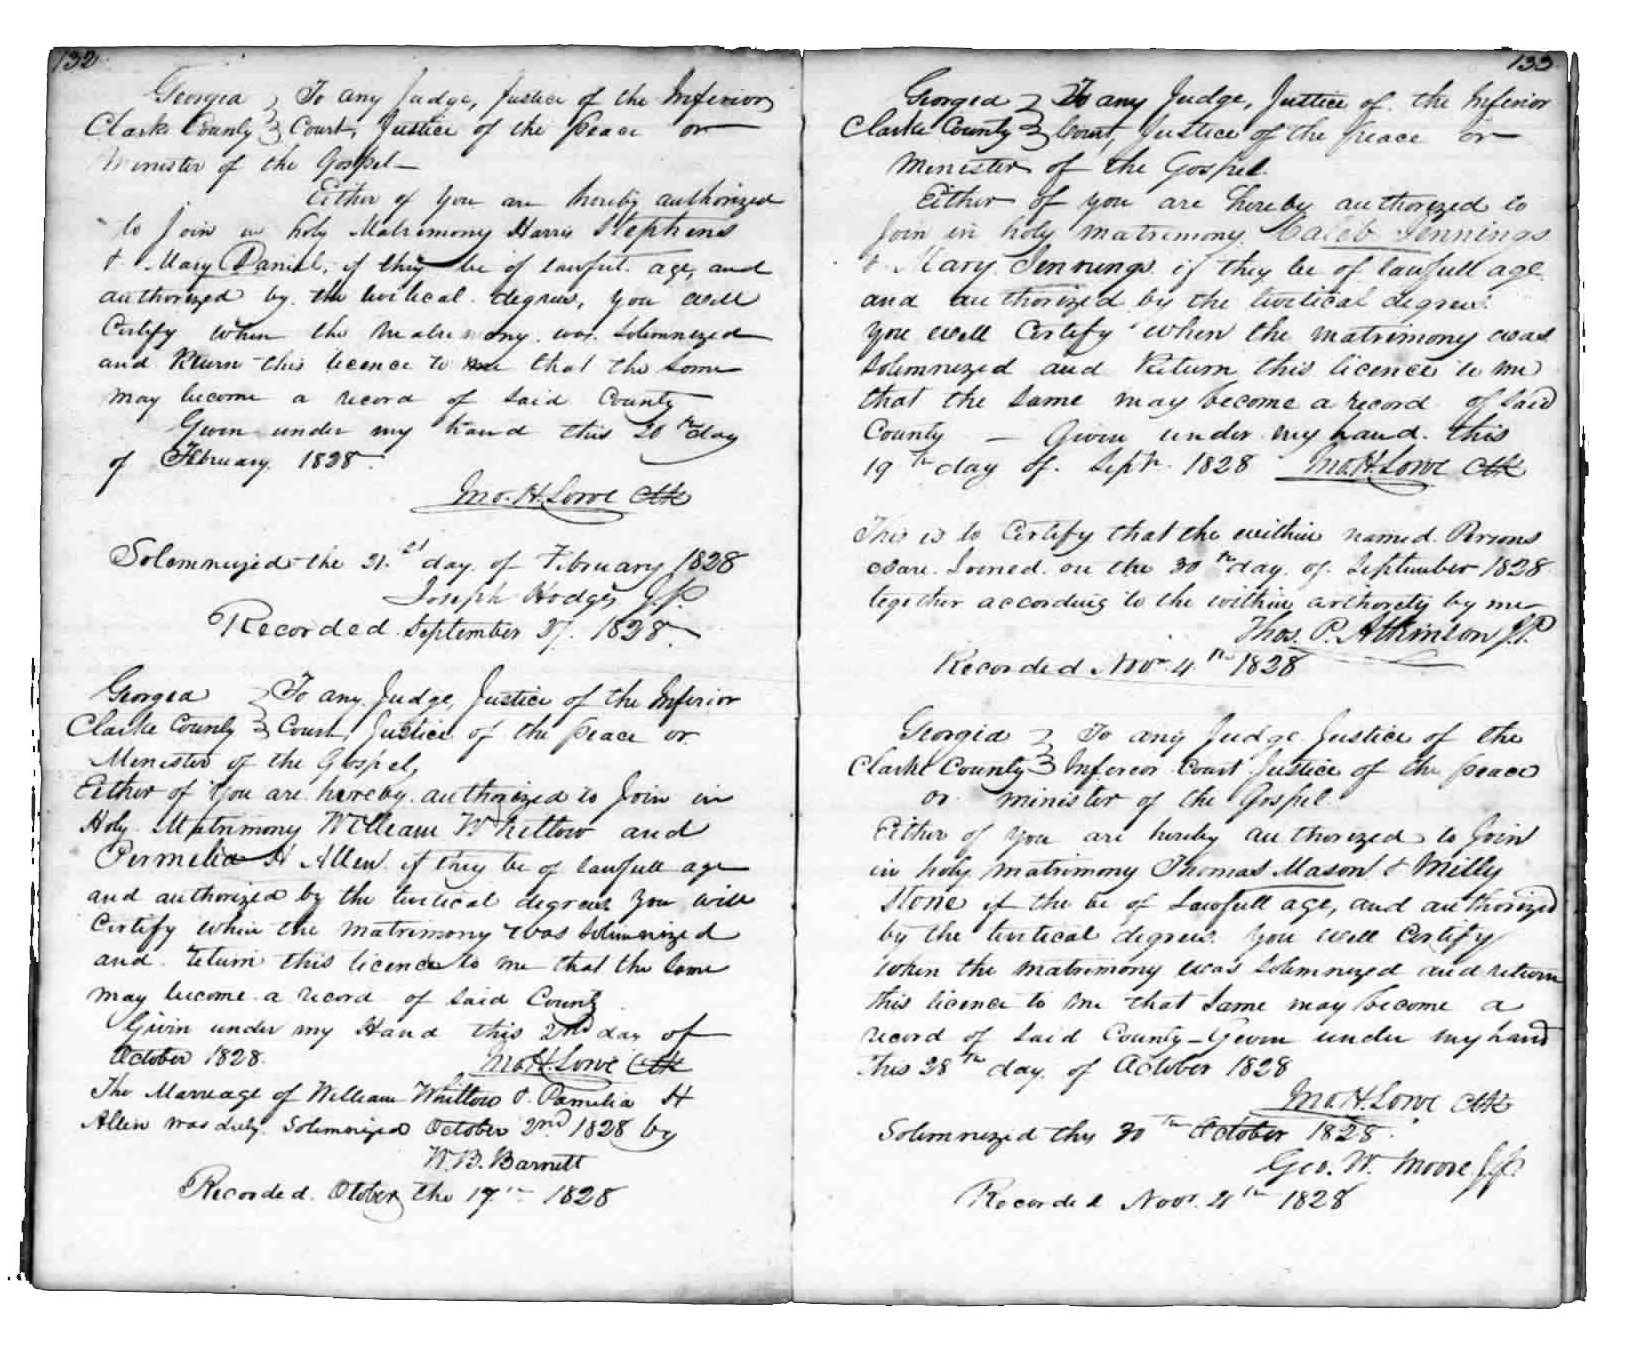 132
Georgia } To any Judge, Justice of the Inferior
Clarke County } Court, Justice of the Peace or
Minister of the Gospel
Either of you are hereby authorized
to Join in holy Matrimony Harris Stephens
& Mary Daniel, if they be of lawful age, and
authorized by the levitical degrees, you will
Certify when the Matrimony was Solemnized
and Return this licence to me that the Same
may become a record of Said County
Given under my hand this 20th day
of February 1828.
Jno. H. Lowe Clk
Solemnized the 21st day of February 1828
Joseph Hodges J.P.
Recorded September 27. 1828
Georgia } To any Judge, Justice of the Inferior
Clarke County } Court, Justice of the Peace or
Minister of the Gospel,
Either of You are hereby authorized to Join in
Holy Matrimony William Whitlow and
Permelia H Allen if they be of lawfull age
and authorized by the levitical degrees You will
Certify when the matrimony was Solemnized
and return this licence to me that the Same
may become a record of Said County
Givin under my Hand this 2nd day of
October 1828. Jno H. Lowe Clk
The Marreage of William Whitlow & Pamelia H
Allen was duly Solemnized October 2nd 1828 by
W. B. Barnett
Recorded Otober the 17th 1828
133
Georgia } To any Judge, Justice of the Inferior
Clarke County } Court, Justice of the Peace or
Minister of the Gospel.
Either of you are hereby authorized to
Join in holy matrimony Caleb Jennings
& Mary Jennings if they be of lawfull age
and authorized by the levitical degrees
You will Certify when the matrimony was
Solemnized and Return this licence to me
that the Same may become a record of Said
County — Given under my hand this
19th day of Sept 1828 Jno. H. Lowe Clk
This is to Certify that the within named Persons
ware Joined on the 30th day of September 1828
together according to the within authority by me
Thos. P. Atkinson J.P.
Recorded Nov 4th 1828
Georgia } To any Judge Justice of the
Clarke County } Inferior Court Justice of the peace
or minister of the Gospel
Either of you are hereby authorized to Join
in holy matrimony Thomas Mason & Milly
Stone if the be of Lawfull age, and authorized
by the levitical degrees. You will Certify
when the matrimony was Solemnized and return
this licence to me that Same may become a
record of Said County - Given under my hand
This 28th day of October 1828
Jno. H. Lowe Clk
Solemnized this 30th October 1828.
Geo. W. Moore J.P.
Recorded Novr. 4th 1828